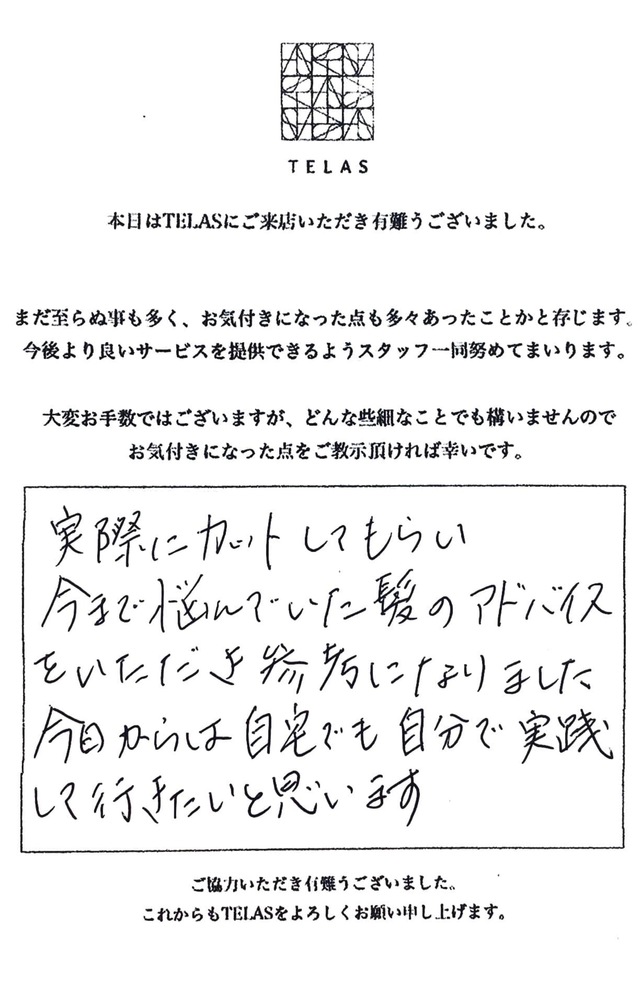 TELAS
本日はTELASにご来店いただき有難うございました。
まだ至らぬ事も多く、お気付きになった点も多々あったことかと存じます。
今後より良いサービスを提供できるようスタッフ一同努めてまいります。
大変お手数ではございますが、どんな些細なことでも構いませんので
お気付きになった点をご教示頂ければ幸いです。
実際にカットしてもらい
今まで悩んでいた髪のアドバイス
をいただき参考になりました
今日からは自宅でも自分で実践
して行きたいと思います
ご協力いただき有難うございました。
これからもTELASをよろしくお願い申し上げます。